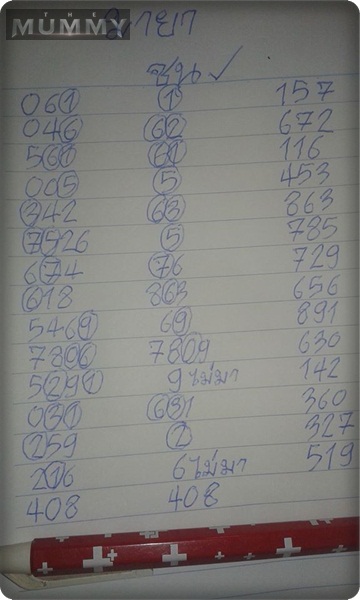 THE
MUMMY
มายา
ชน ✓
061 1 157
046 62 672
561 61 116
005 5 453
342 63 863
7526 5 785
674 76 729
618 863 656
5469 69 891
7806 7809 630
5291 9 ไม่มา 142
031 631 360
259 2 327
216 6 ไม่มา 519
408 408